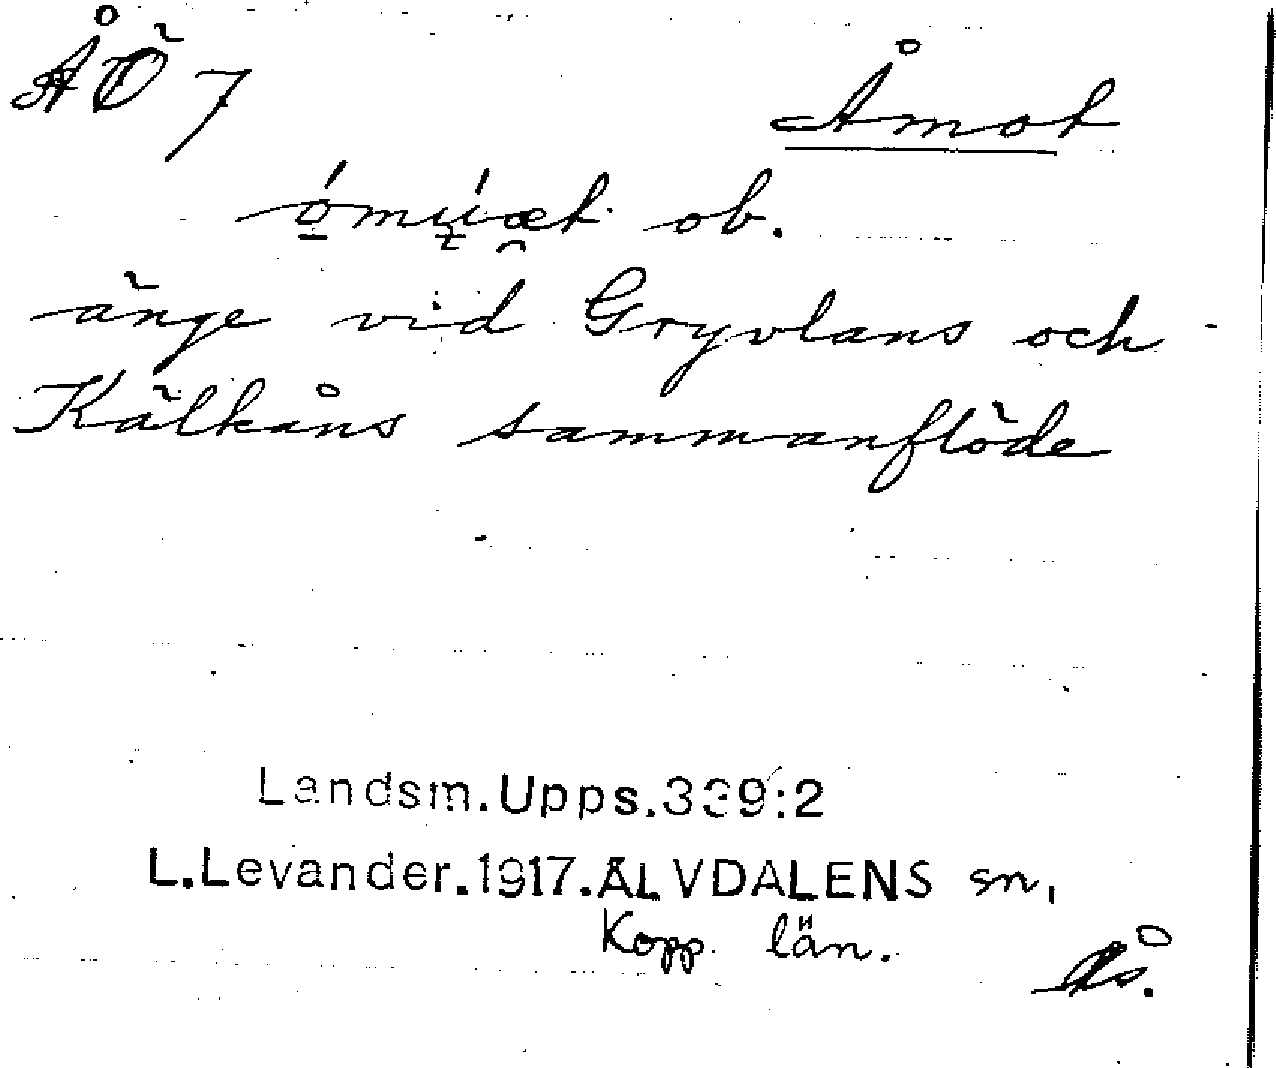 ÅÖ 7
Åmot
ómúæt ob.
änge vid Gryvlans och
Kälkåns sammanflöde
Landsm.Upps.339:2
L.Levander.1917.ÄLVDALENS sn.
Kopp. län.